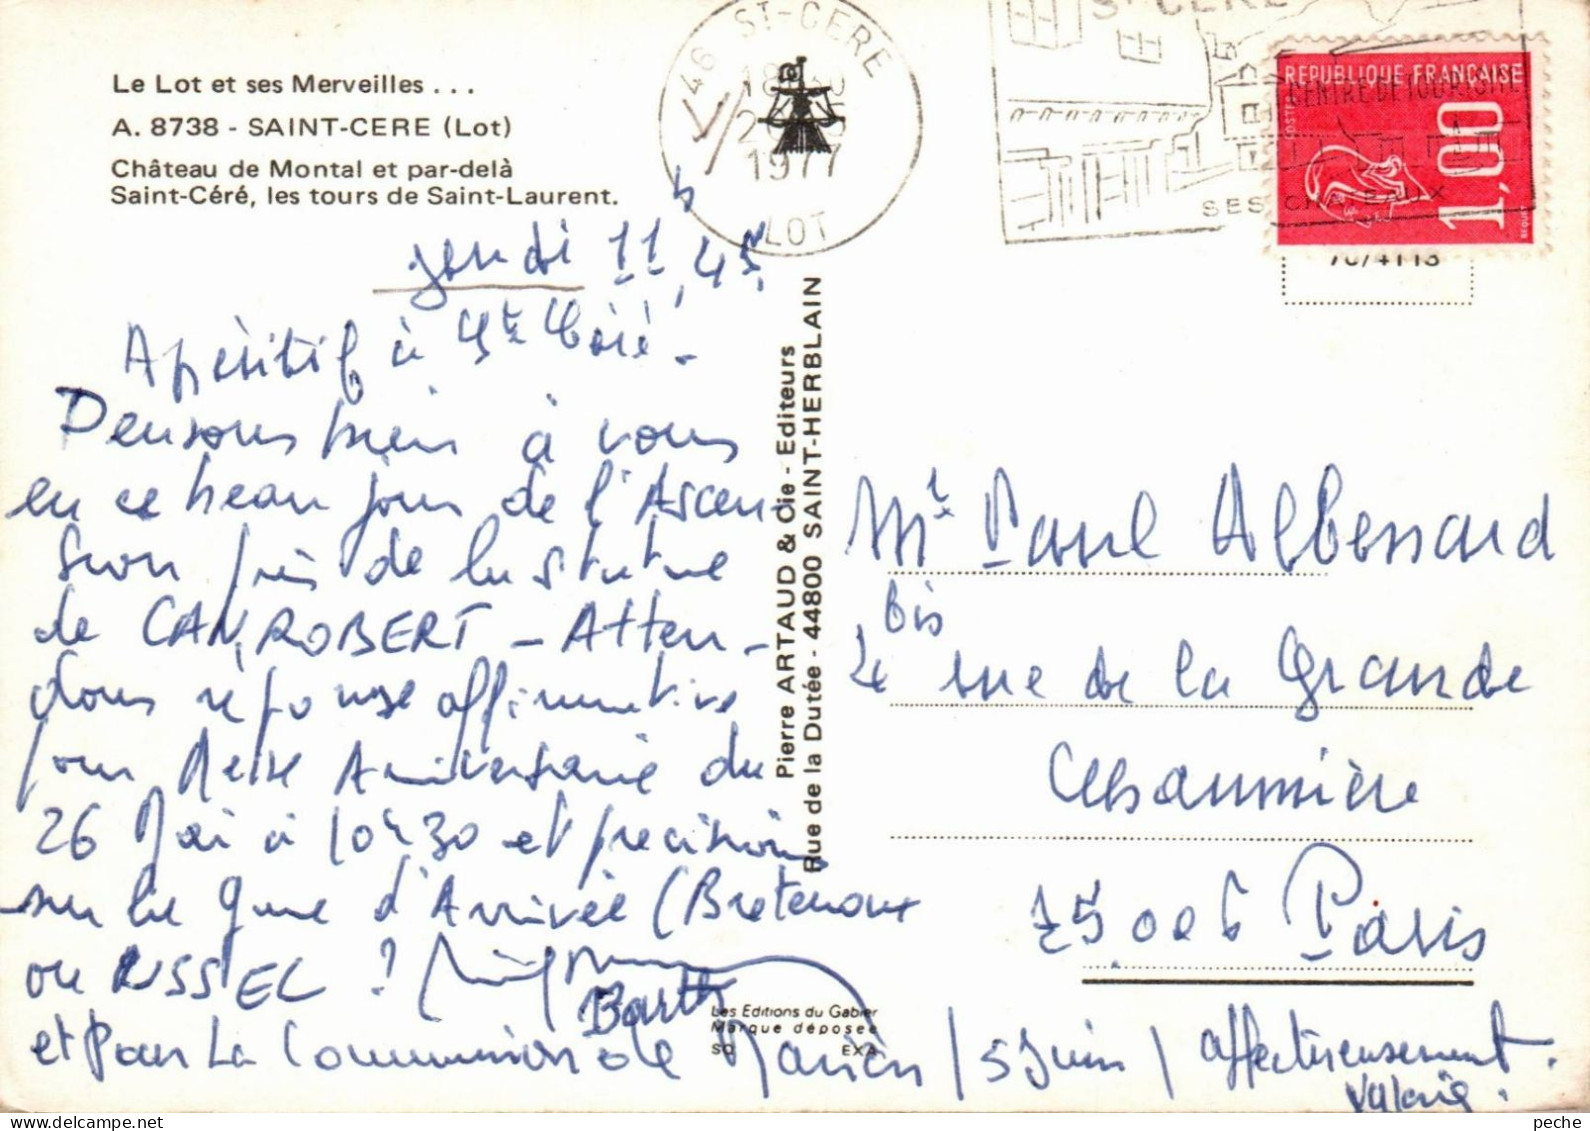 Le Lot et ses Merveilles . . .
A. 8738 - SAINT-CERE (Lot)
Château de Montal et par-delà
Saint-Céré, les tours de Saint-Laurent.
46 ST-CERE
1977
LOT
ST CERE
CENTRE DE TOURISME
SES CHATEAUX
REPUBLIQUE FRANÇAISE
POSTES
1,00
jeudi 11h 45
Apéritif à St Céré -
Pensons bien à vous
en ce beau jour de l'Ascen-
sion près de la statue
de CANROBERT - Atten-
dons réponse affirmative
pour Messe Anniversaire du
26 Mai à 10h30 et précisions
sur la gare d'Arrivée (Bretenoux
ou RUSSEL ?
Barth
et pour La Communion de / 5 Juin / affectueusement.
Valérie
Pierre ARTAUD & Cie - Editeurs
Rue de la Dutée - 44800 SAINT-HERBLAIN
Les Editions du Gabier
Marque déposée
EXA
Mr Paul Albessard
4 bis rue de la Grande
Chaumière
75006 Paris
peche